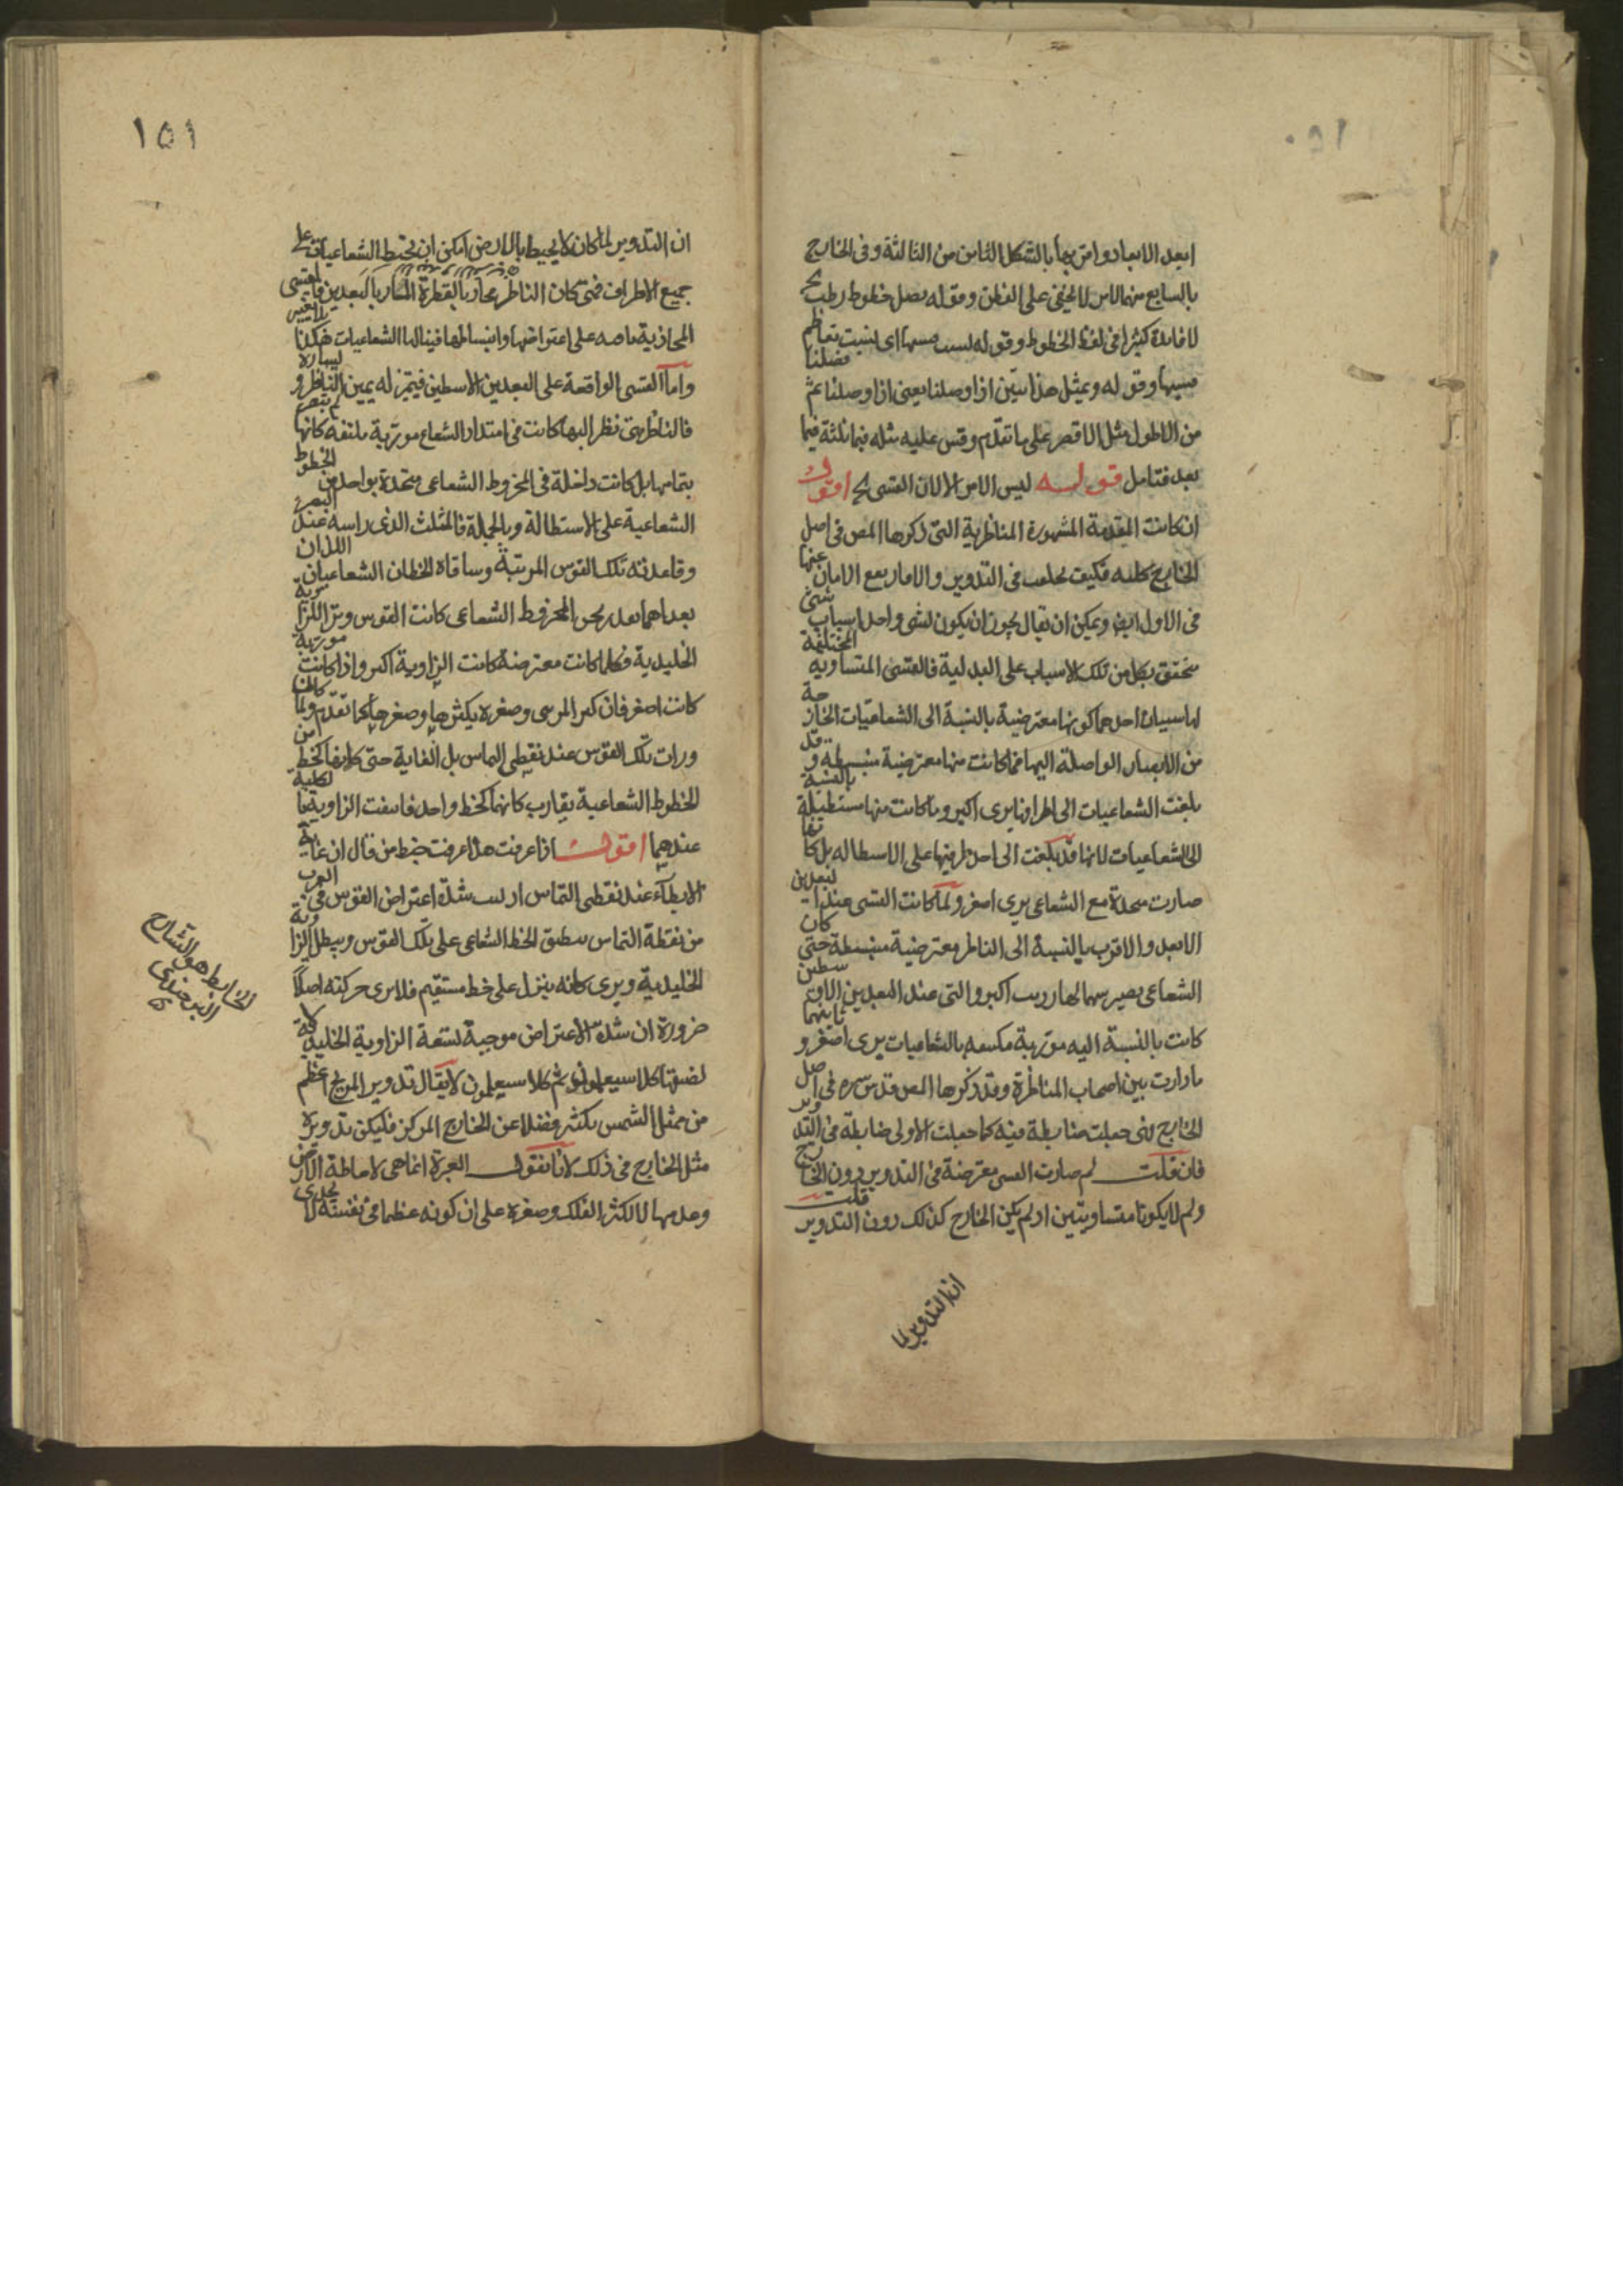 ابعد الابعاد واقربها بالشكل الثامن من الثالثة وفى الخارج
بالسابع منها لامر لا يخفى على الفطن وقوله يصل خطوط رطب
لا فائدة كثيرا فى لفظ الخطوط وقوله نسب قسيها اى لنسبت تعاظم
قسيها وقوله وبمثل هذا نبين اذا وصلنا يعنى اذا وصلنا فضلنا
من الاطول مثل الاقصر على ما تقدم وقس عليه مثله فيما ثلثة فيما
بعد فتامل قوله ليس الامر الا لان القسى اقول
ان كانت المقدمة المشهورة المناظرية التى ذكرها المص فى اصل
الخارج كلية فكيف تخلف فى التدوير والا فما ربع الامان عنها
فى الاول ايض ويمكن ان يقال يجوز ان يكون لشى واحد اسباب شتى
متحقق بكل من تلك الاسباب على البدلية فالقسى المتساوية المختلفة
لها سببان احدهما كونها معترضية بالنسبة الى الشعاعيات الخارجة
من الابصار الواصلة اليها فما كانت منها معترضية منبسطة وقد
بلغت الشعاعيات الى اطرافها يرى اكبر وما كانت منها مستطيلة بالنسبة
الى الشعاعيات لانها قد بلغت الى احد طرفيها على الاستطالة بل كانها
صارت متحدة مع الشعاعى يرى اصغر ولما كانت القسى عند البعدين
الابعد والاقرب بالنسبة الى الناظر معترضية منبسطة حتى كان
الشعاعى يصير سهما لها رويت اكبر والتى عند البعدين الاوسطين
كانت بالنسبة اليه موتربة بالشعاعيات يرى اصغر و
ما دارت بين اصحاب المناظرة وقد ذكرها المص قدس سره فى اصل
الخارج لئن جعلت ضابطة فيه كما جعلت الاولى ضابطة فى التدوير
فان قلت لم صارت القسى معترضة فى التدوير دون الخارج
ولم لا يكونا متساويتين اذ لم يكن الخارج كذلك دون التدوير قلت
ان التدوير لما
١٥١
ان التدوير لما كان لا يحيط بالارض امكن ان يحيط الشعاعيات على
جميع الاطراف فمتى كان الناظر محاذيا لقطره المار بالبعدين فالقسى
المحاذية باقية على اعتراضها وانبساطها فينالها الشعاعيات هكذا
واما القسى الواقعة على البعدين الاوسطين فيتميز له يمين الناظر ويساره
فالناظر متى نظر اليها كانت فى امتداد الشعاع موتربة ملتفة كانها لم تبصر
بتمامها بل كانت داخلة فى المخروط الشعاعى متحدة بواحد من الخطوط
الشعاعية على الاستطالة وبالجملة فالمثلث الذى راسه عند البصر
وقاعدته تلك القوس المرئية وساقاه الخطان الشعاعيان اللذان
بعداهما الشعاعى كانت القوس وتر الزاوية
الجليدية فكلما كانت معترضة كانت الزاوية اكبر واذا كانت موتربة
كانت اصغر فان كبر المرئى وصغره يكثرها وصغرها كما تقدم ولما كانت
ورات تلك القوس عند نقطتى التماس بل الغاية حتى كانها كخط من
الخطوط الشعاعية يقارب كانهما كخط واحد فانتفت الزاوية بالكلية
عندهما اقول اذا عرفت هذا عرفت خبط من قال ان غاية
الابطاء عند نقطتى التماس اذ ليست شدة اعتراض القوس فى القرب
من نقطة التماس ينطبق الخط الشعاعى على تلك القوس ويبطل الزاوية
الجليدية ويرى كانه ينزل على خط مستقيم فلا يرى حركته اصلا
ضرورة ان شدة الاعتراض موجبة لسعة الزاوية الجليدية لا
لضيقها كلا سيعلمون ثم كلا سيعلمون لا يقال تدوير المريخ اعظم
من ممثل الشمس بكثير فضلا عن الخارج المركز فليكن تدويره
مثل الخارج فى ذلك لانا نقول العبرة انما هى لاحاطة الارض
وعدمها لا لكثر الفلك وصغره على ان كونه عظيما فى نفسه لا يجدى
الخابط هو الشارح
البرجندى